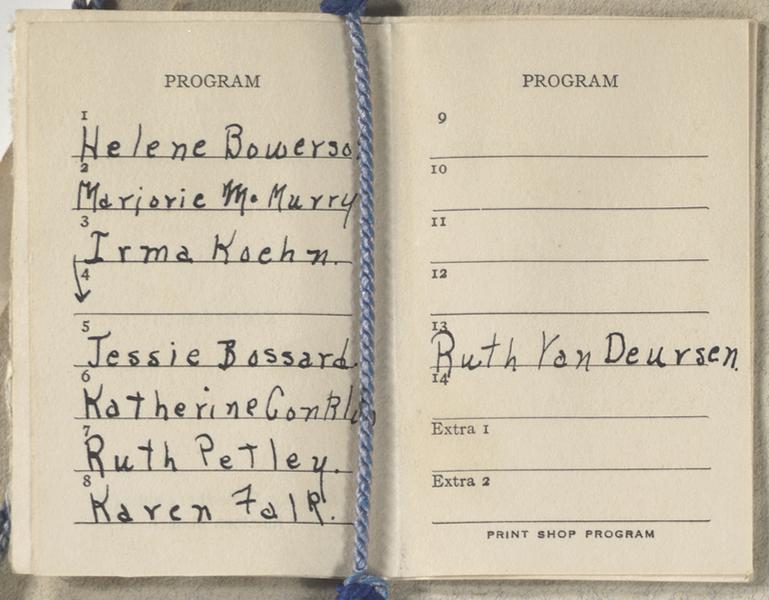 PROGRAM
1
Helene Bowerso
2
Marjorie McMurry
3
Irma Koehn.
4
5
Jessie Bossard.
6
Katherine Conklin
7
Ruth Petley.
8
Karen Falk.
PROGRAM
9
10
11
12
13
Ruth Van Deursen.
14
Extra 1
Extra 2
PRINT SHOP PROGRAM